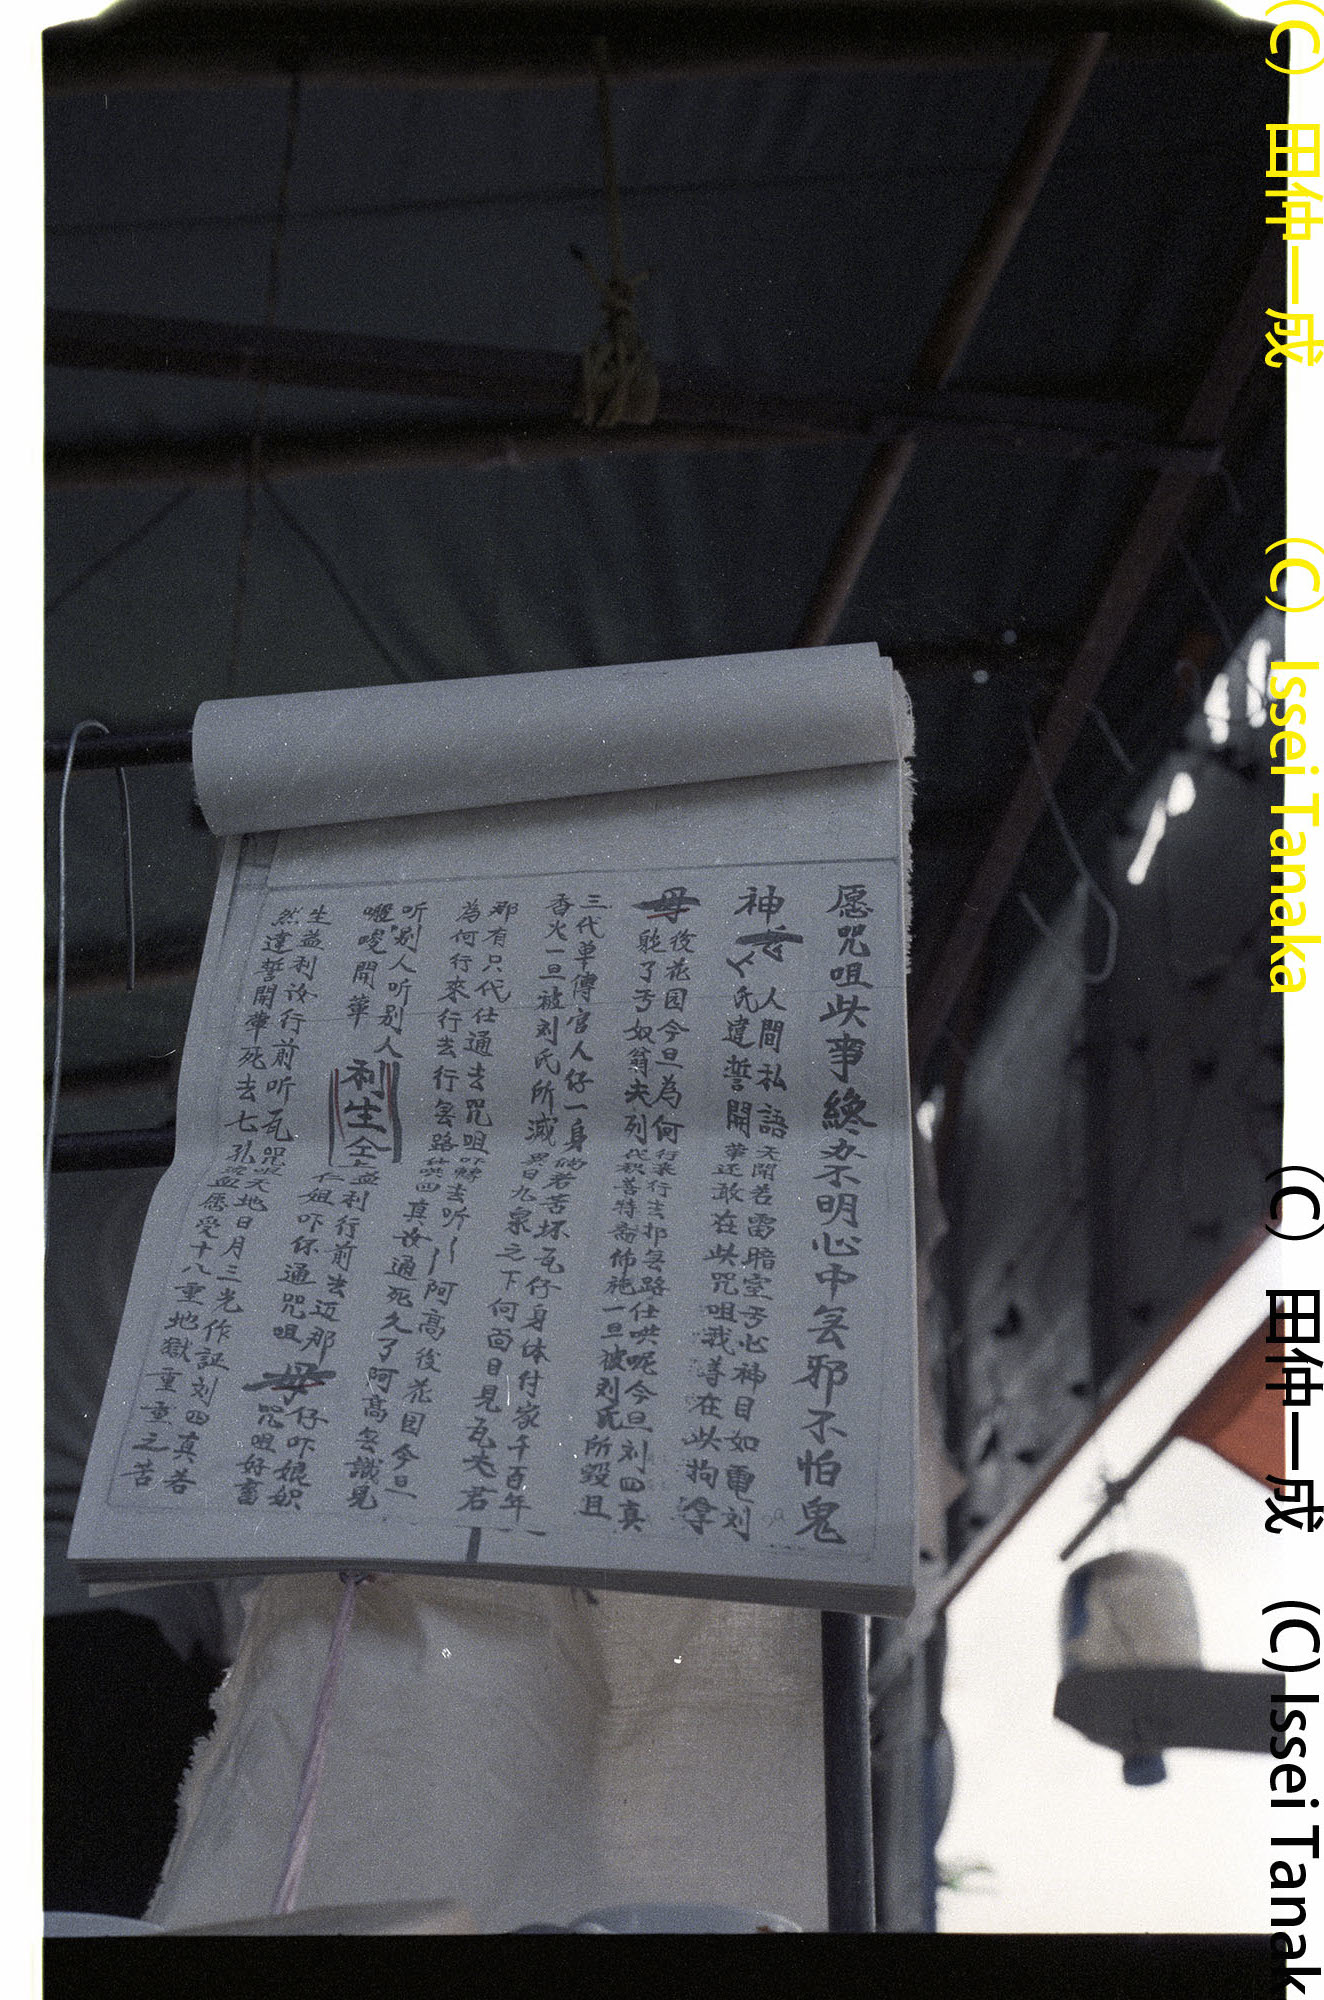 愿咒咀此事終办不明心中无邪不怕鬼
神
人間私語天聞若雷暗室亏心神目如電刘
氏違誓開葷还敢在此咒咀我尊在此拘拿
母
後花园今旦為何行來行去抑无路仕哄呢今旦刘四真
了亏奴翁夫列代积善特斋佈施一旦被刘氏所毀且
三代单傳官人仔一身倘若苦坏瓦仔身体付家千百年
香火一旦被刘氏所滅異日九泉之下何面目見瓦夫君
那有只代仕通去咒咀吓轉去听
阿高後花园今旦
為何行來行去行无路仕哄四真汝通死久了阿高无識見
听别人听别人
開葷
利生仝
益利行前去迈那
仁姐吓你通咒咀
母
仔吓娘奴
咒咀好畜
生益利汝行前听瓦咒天地日月三光作証刘四真若
然違誓開葷死去七孔
愿受十八重地獄重重之苦
(C) 田仲一成
(C) Issei Tanaka
(C) 田仲一成
(C) Issei Tanak